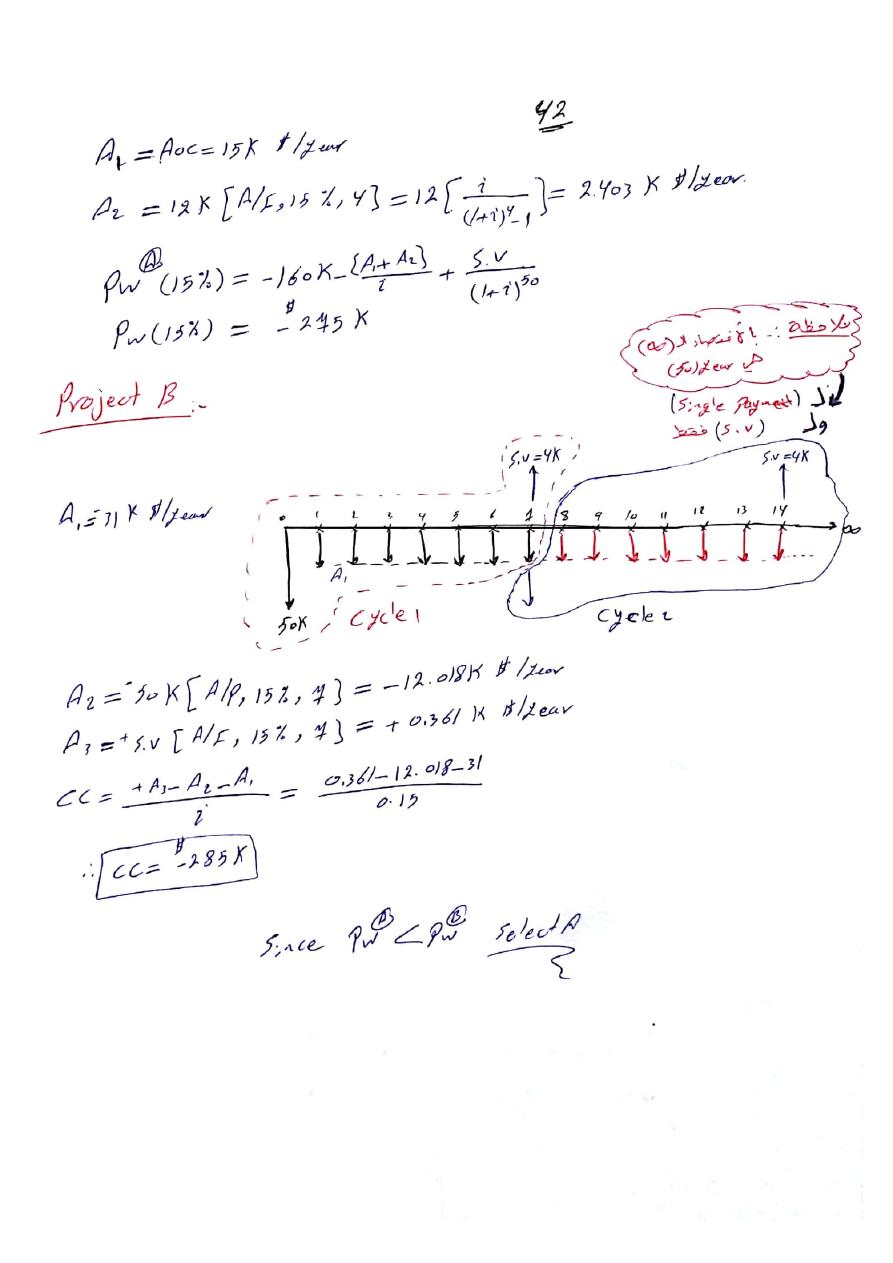 42
A₁ = AOC = 15K $/year
A₂ = 12K [A/F, 15%, 4] = 12 [i / ((1+i)⁴ - 1)] = 2.403 K $/year.
PW Ⓐ (15%) = -160K - {A₁ + A₂} / i + S.V / (1+i)⁵⁰
PW (15%) = $ -275 K
ملاحظة :- بالأقتصاد الـ (∞)
هي (50) year
لـ (Single Payment)
ولـ (S.V) فقط
Project B :-
S.V = 4K
S.V = 4K
A₁ = 31 K $/year
0 1 2 3 4 5 6 7 8 9 10 11 12 13 14 ∞
A₁
50K
Cycle 1
Cycle 2
A₂ = -50 K [A/P, 15%, 7] = -12.018K $/year
A₃ = +S.V [A/F, 15%, 7] = + 0.361 K $/year
CC = (+A₃ - A₂ - A₁) / i = (0.361 - 12.018 - 31) / 0.15
∴ CC = $ -285 K
Since PW Ⓐ < PW Ⓑ Select A